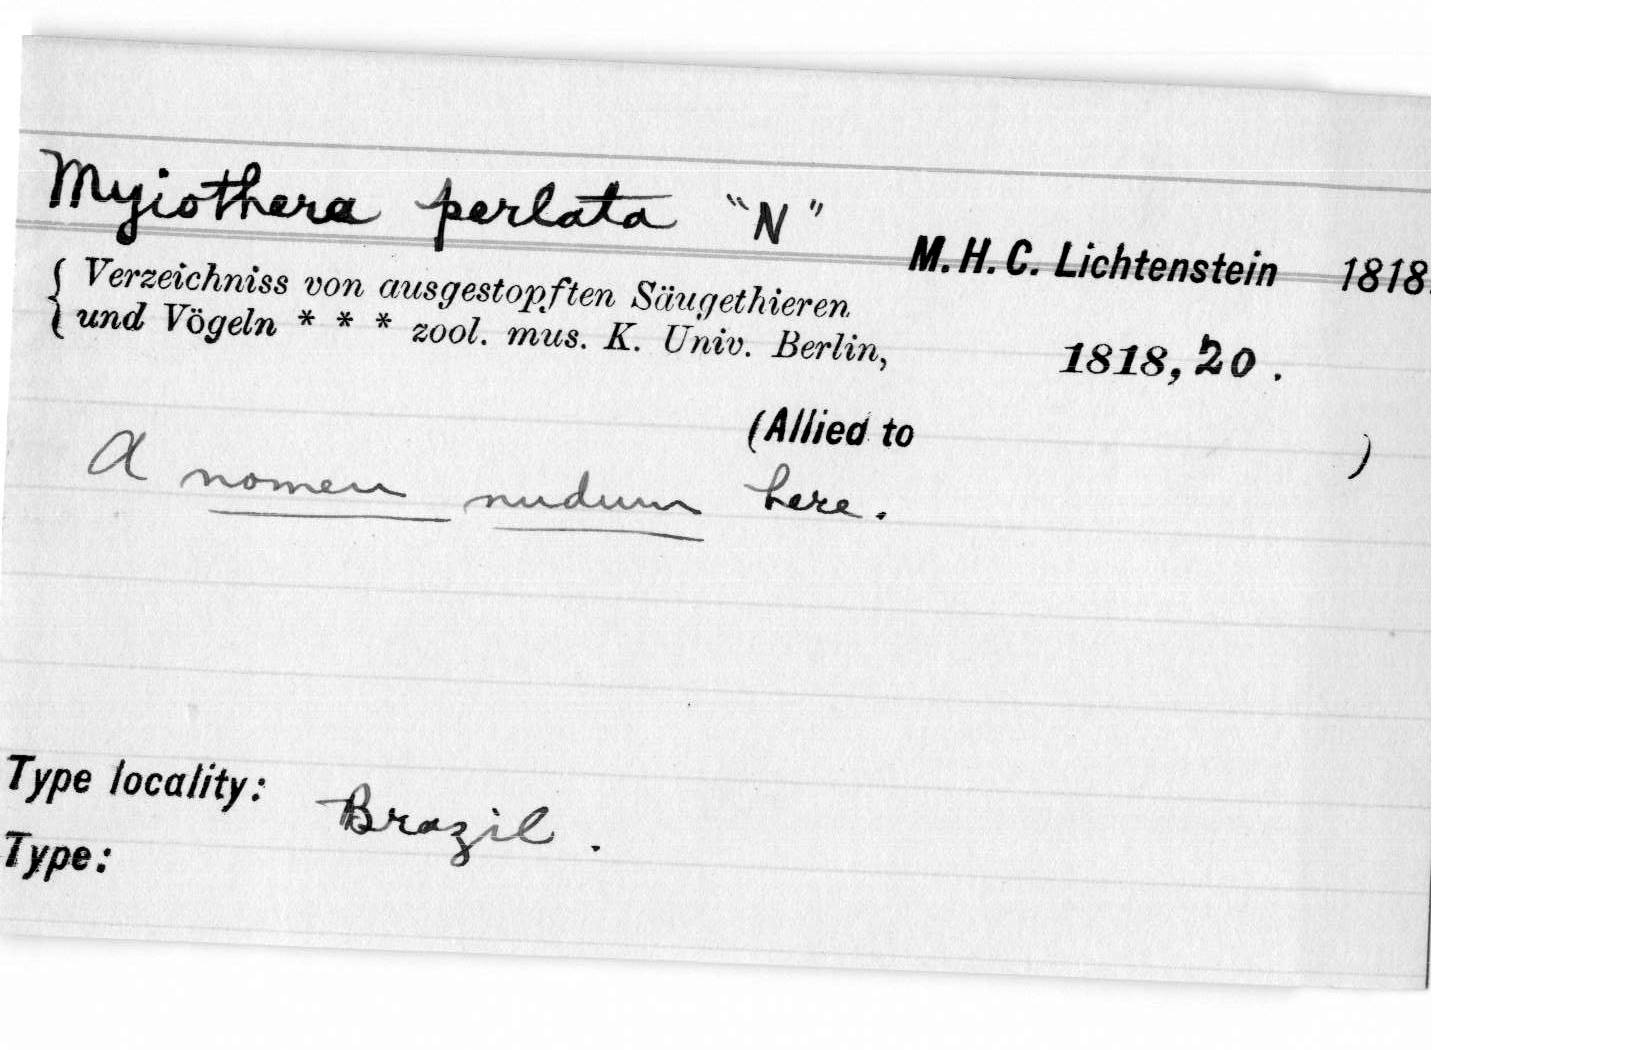 Myiothera perlata "N"
M. H. C. Lichtenstein 1818.
Verzeichniss von ausgestopften Säugethieren
und Vögeln * * * zool. mus. K. Univ. Berlin, 1818, 20.
(Allied to )
A nomen nudum here.
Type locality: Brazil.
Type: